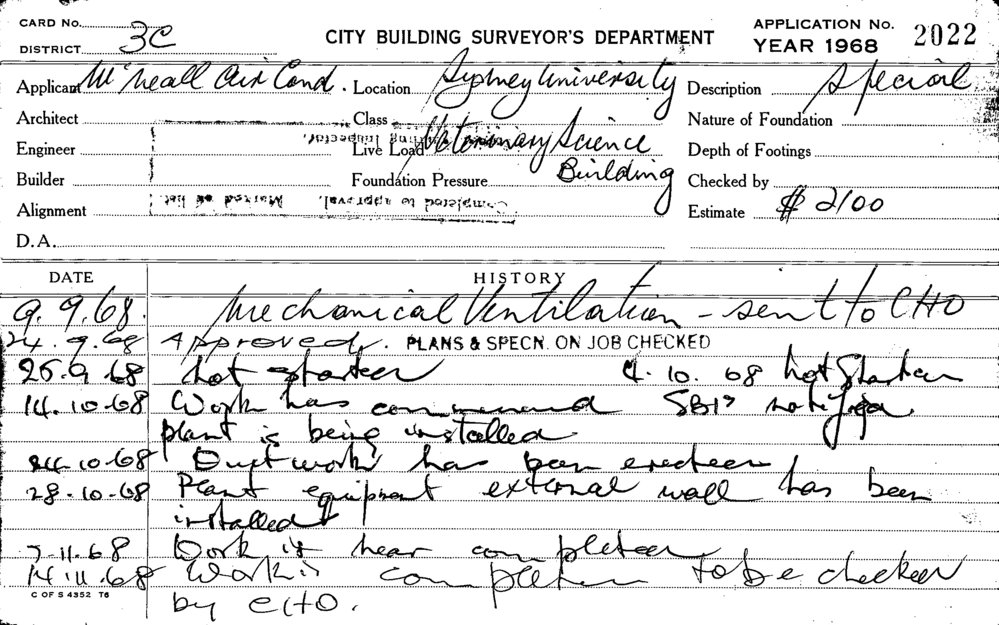 CARD No.
DISTRICT 3C
CITY BUILDING SURVEYOR'S DEPARTMENT
APPLICATION No. 2022
YEAR 1968
Applicant McNeall Air Cond. Location Sydney University Description Special
Architect Class Nature of Foundation
Engineer Live Load Veterinary Science Depth of Footings
Builder Foundation Pressure Building Checked by
Alignment Completed to approval. Marked off list. Estimate $ 2100
D.A.
DATE HISTORY
9.9.68. Mechanical Ventilation - sent to CHO
24.9.68 Approved. PLANS & SPECN. ON JOB CHECKED
25.9.68 Not started 4.10.68 Not Started
14.10.68 Work has commenced notified
plant is being installed
24.10.68 Duct work has been erected
28.10.68 Plant equipment external wall has been
installed
7-11.68 Work is near completed
14.11.68 Work is completed to be checked
by CHO.
C OF S 4352 T6